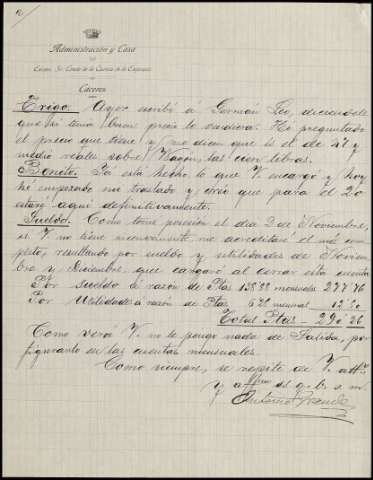 Administración y Casa
DEL
Excmo. Sr. Conde de la
Cáceres
Trigo. Ayer escribí á Germán Leo, diciendole
que si tenia buen precio lo vendiera. He preguntado
el precio que tiene y me dicen que es el de 47 y
medio reales sobre Wagon, las cien libras.
Boneto. Ya está hecho lo que V. encargó y hoy
he empezado mi traslado y creo que para el 20
estaré aqui definitivamente.
Sueldo. Como tomé posesion el dia 2 de Noviembre,
si V. no tiene inconveniente me acreditaré el mes com-
pleto, resultando por sueldo y utilidades de Noviem-
bre y Diciembre que cargaré al cerrar esta cuenta
Por Sueldo á razón de Ptas 138'88 mensuales 277'76
Por Utilidades á razón de Ptas 6'25 mensual 12'50
Total Ptas 290'26
Como verá V. no le pongo nada de Salida, por
figurarlo en las cuentas mensuales.
Como siempre, se repite de V. atto.
y affmo. s.s. q. b. s. m.
Antonio